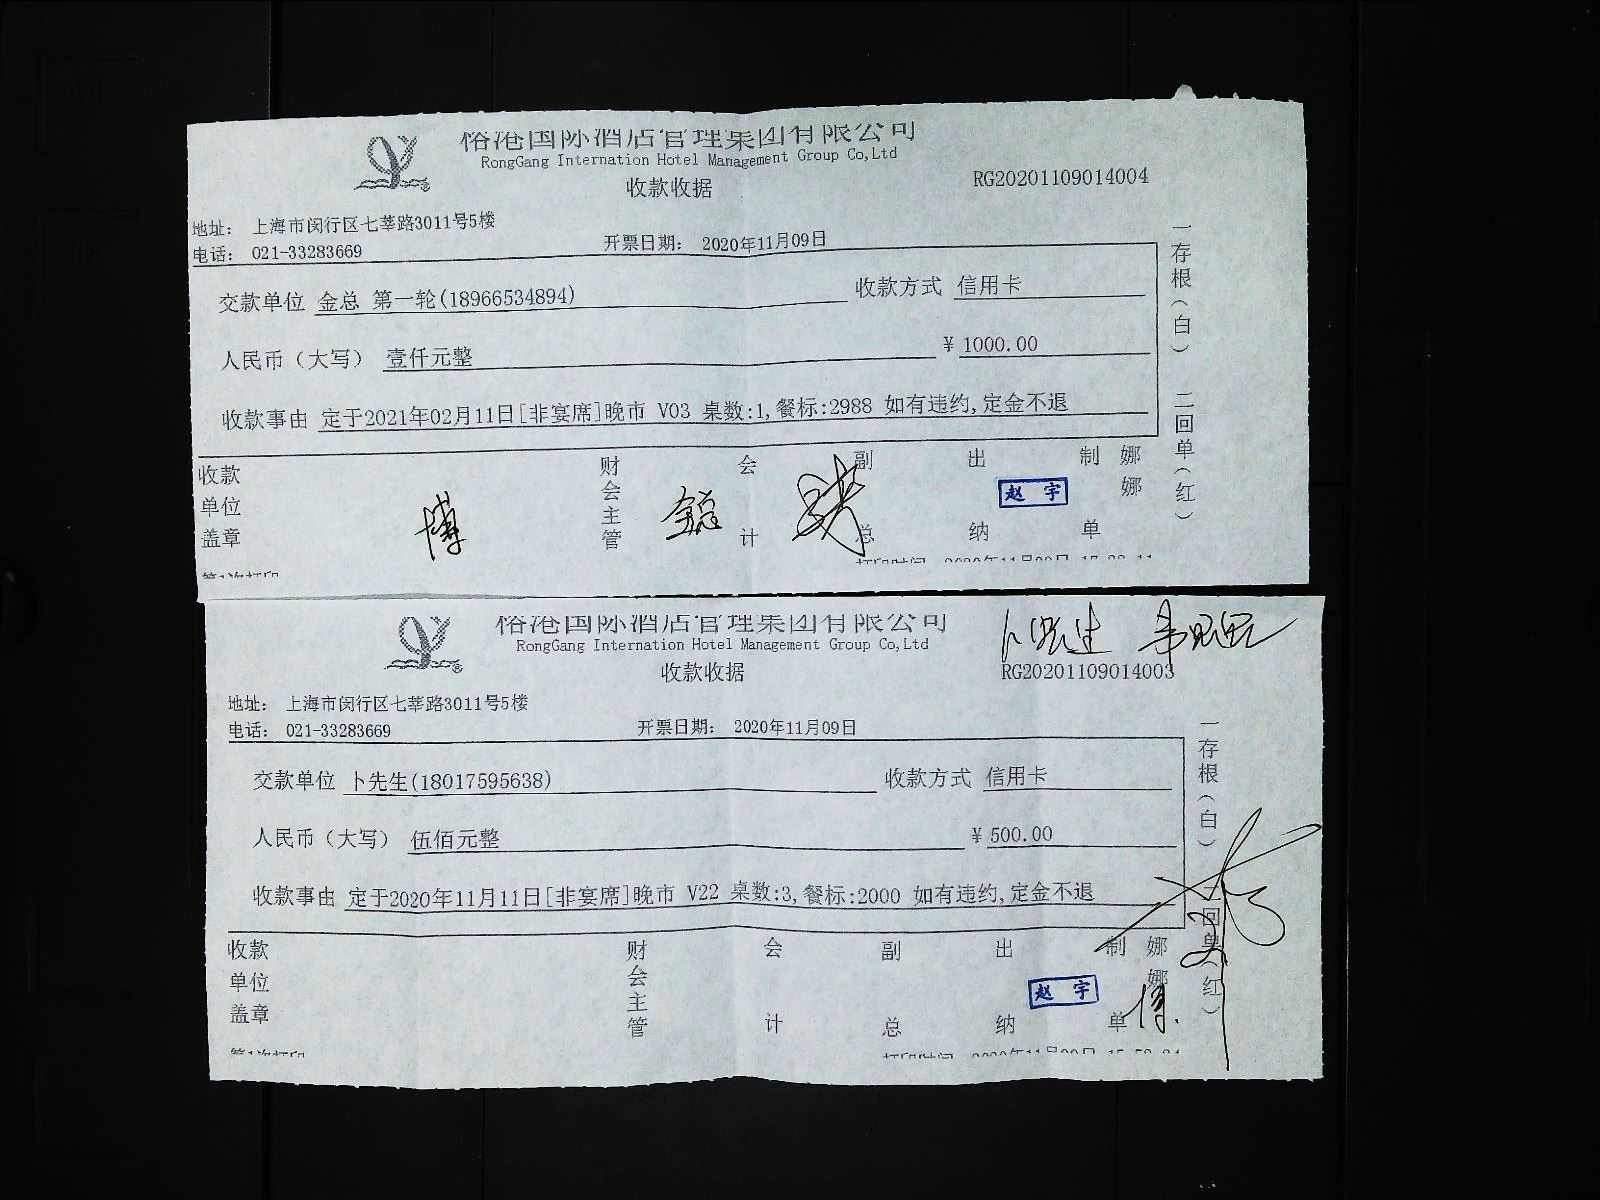 裕港国际酒店管理集团有限公司
RongGang Internation Hotel Management Group Co,Ltd
收款收据
RG20201109014004
地址： 上海市闵行区七莘路3011号5楼
电话： 021-33283669
开票日期： 2020年11月09日
交款单位 金总 第一轮(18966534894)
收款方式 信用卡
人民币（大写） 壹仟元整
¥ 1000.00
收款事由 定于2021年02月11日[非宴席]晚市 V03 桌数:1,餐标:2988 如有违约,定金不退
一存根（白） 二回单（红）
收款单位盖章
博
财会主管
金总
会计
副总
出纳
赵宇
制单
娜娜
第1次打印
裕港国际酒店管理集团有限公司
RongGang Internation Hotel Management Group Co,Ltd
收款收据
卜先生
RG20201109014003
地址： 上海市闵行区七莘路3011号5楼
电话： 021-33283669
开票日期： 2020年11月09日
交款单位 卜先生(18017595638)
收款方式 信用卡
人民币（大写） 伍佰元整
¥ 500.00
收款事由 定于2020年11月11日[非宴席]晚市 V22 桌数:3,餐标:2000 如有违约,定金不退
一存根（白） 二回单（红）
收款单位盖章
财会主管
会计
副总
出纳
赵宇
制单
娜娜
第1次打印